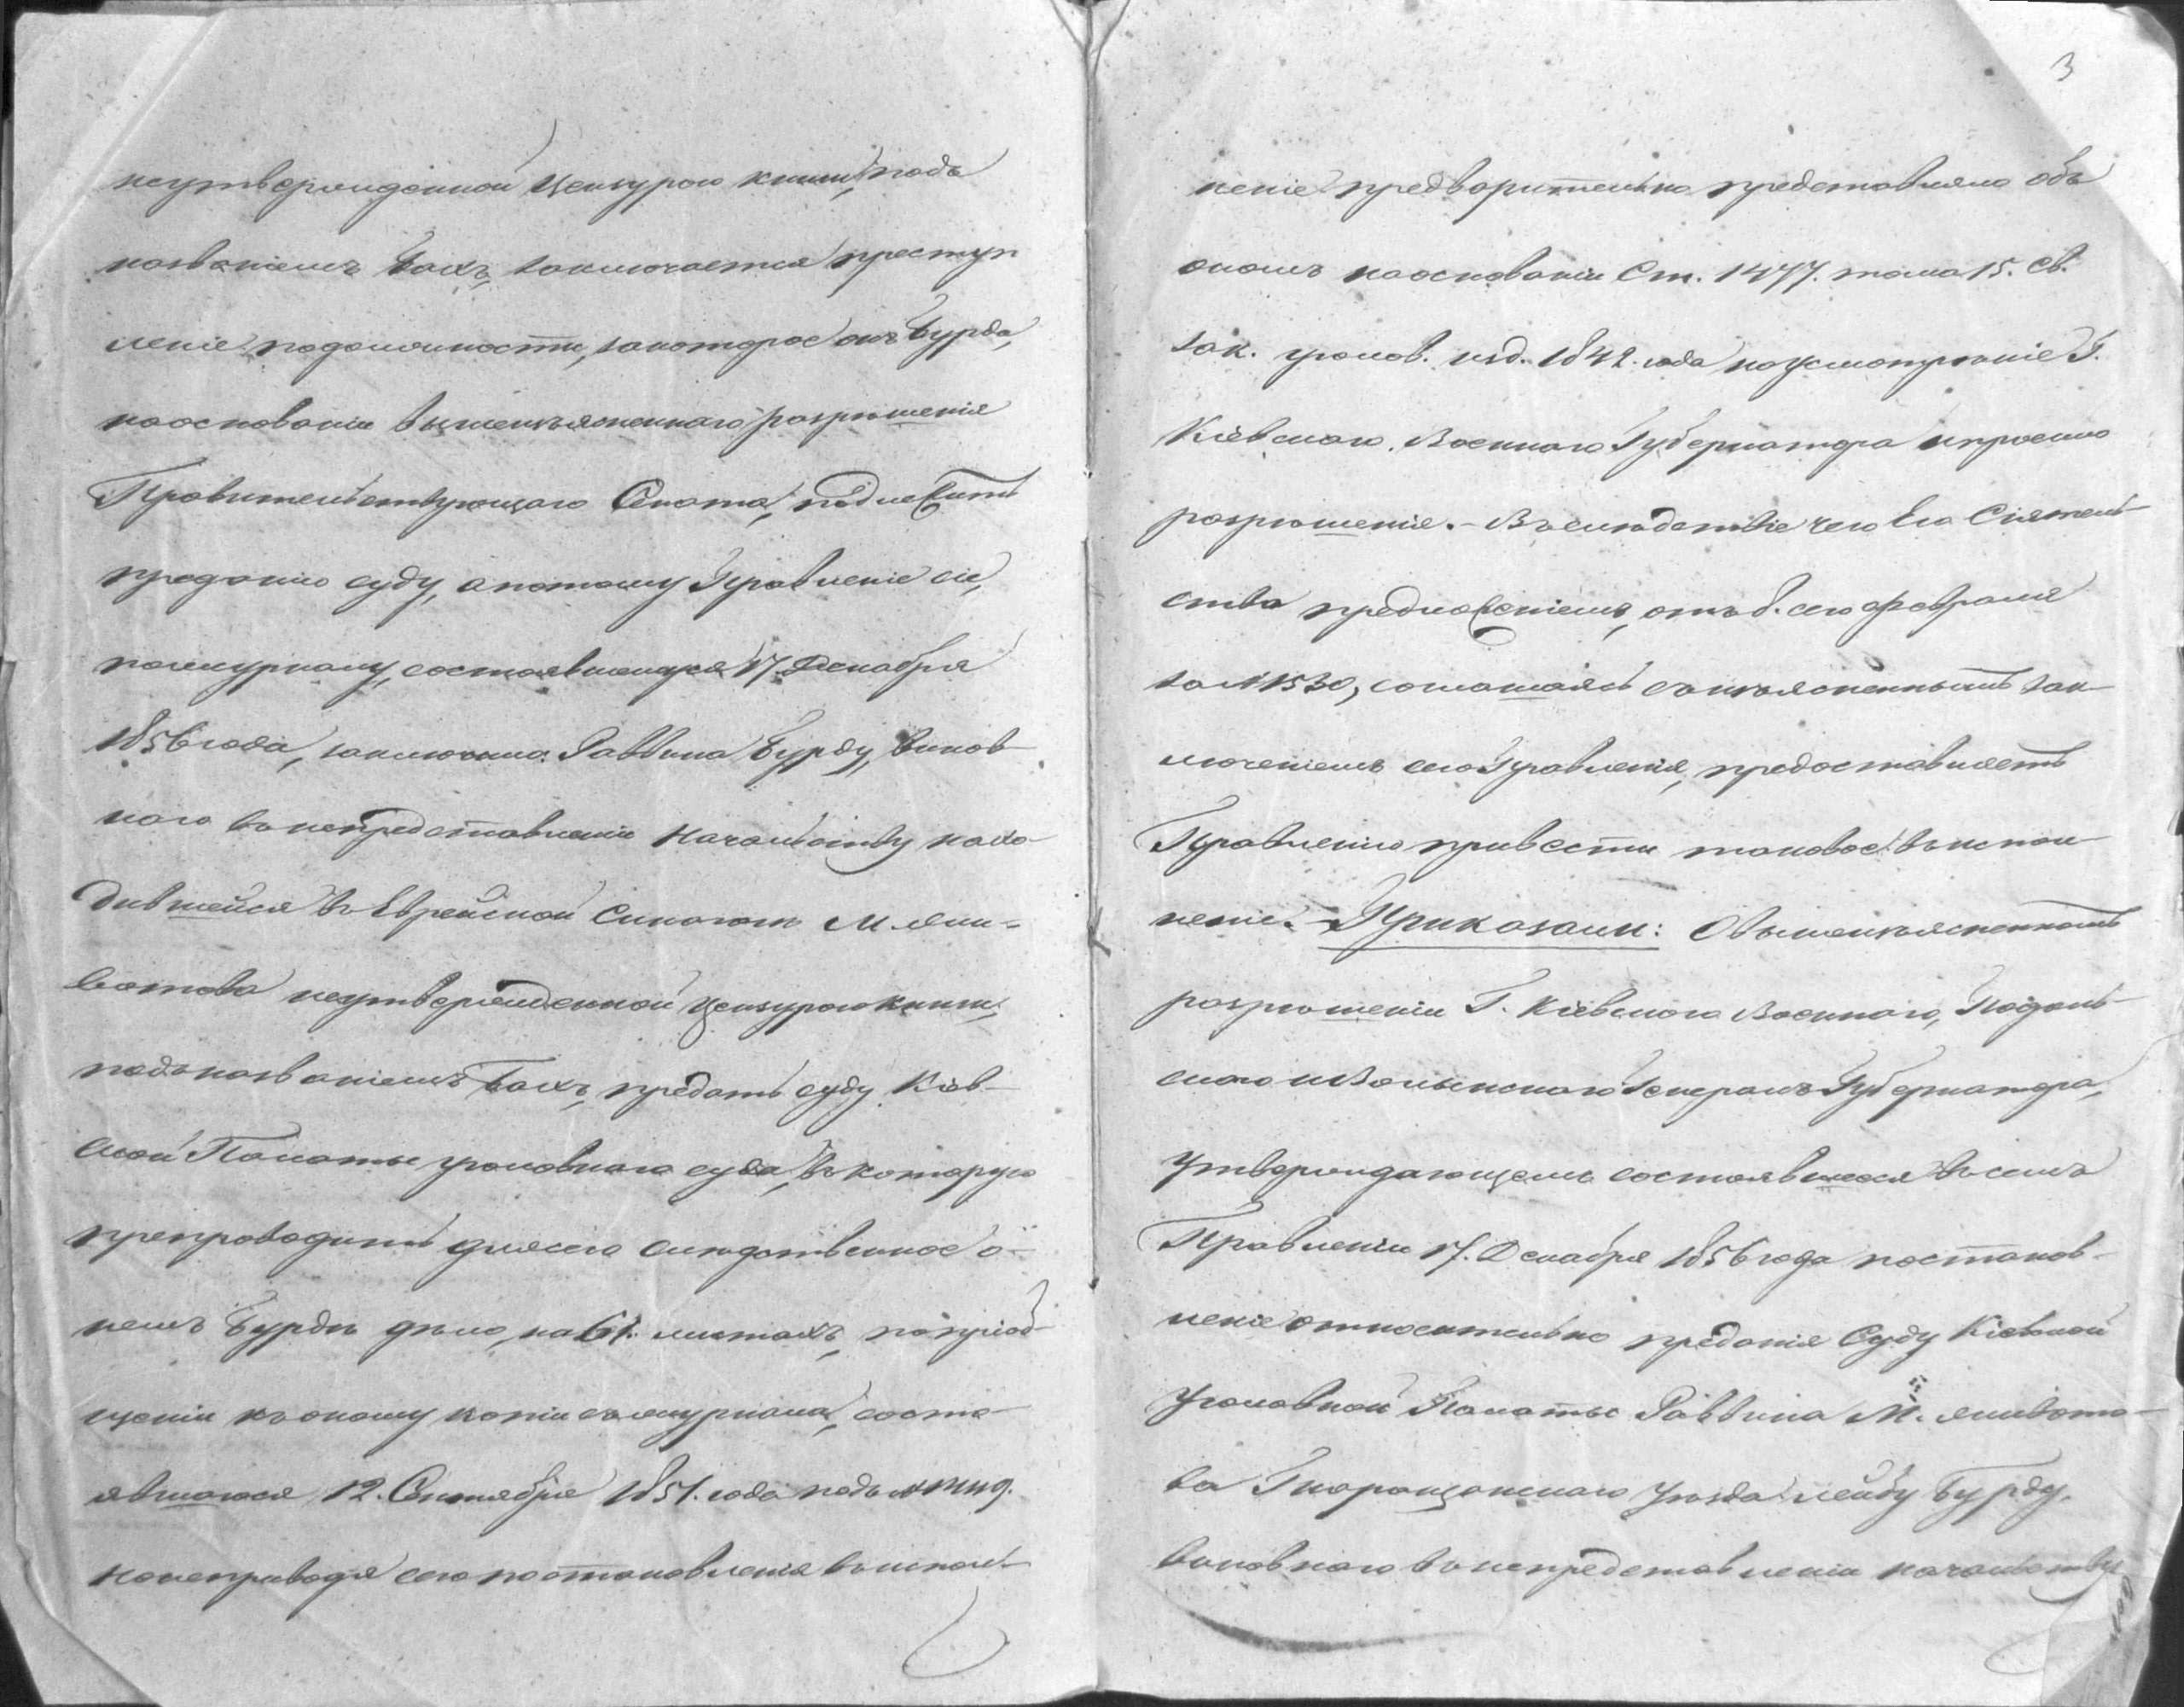 неутвержденной Цензурою книги, подъ
названіемъ Бахъ, заключается преступ
леніе подолжности, закоторое онъ Бурда,
наоснованіи вышеизъясненнаго разрѣшенія
Правительствующаго Сената, подлежитъ
преданію суду, апотому Правленіе сіе,
пожурналу, состоявшемуся 17. Декабря
1856 года, заключило: Раввина Бурду, винов-
наго въ непредставленіи Начальству нахо-
дившейся въ Еврейской Синагогѣ М. Яни-
ватова неутвержденной цензурою книги,
подъ названіемъ Бахъ, предать суду Кіев-
ской Палаты уголовнаго суда, въ которую
препроводить длясего слѣдственное о
немъ Бурдѣ дѣло, на 61. листахъ, по пріоб-
щеніи къ оному копіи съ журнала, состо-
явшагося 12. Сентября 1851. года подъ №
но неприводя сего постановленія въ испол-
3
неніе предварительно представляло объ
ономъ наоснованіи Ст. 1477. тома 15. Св.
Зак. уголов. изд. 1842. года на усмотрѣніе Г.
Кіевскаго Военнаго Губернатора и просило
разрѣшенія. - Въ слѣдствіе чего Его Сіятель-
ство предложеніемъ, отъ 8. сего февраля
за № 1530, соглашаясь съ изъясненнымъ зак-
люченіемъ сего Правленія, предоставляетъ
Правленію привести таковое въ испол-
неніе. - Приказали: О вышеизъясненномъ
разрѣшеніи Г. Кіевскаго Военнаго, Подоль-
скаго и Волынскаго Генералъ Губернатора,
утверждающемъ состоявшееся въ семъ
Правленіи 17. Декабря 1856 года постанов-
леніе относительно преданія Суду Кіевской
Уголовной Палаты Раввина М. Янивато-
ва Таращанскаго Уѣзда Лейбу Бурду,
виновнаго въ непредставленіи начальству